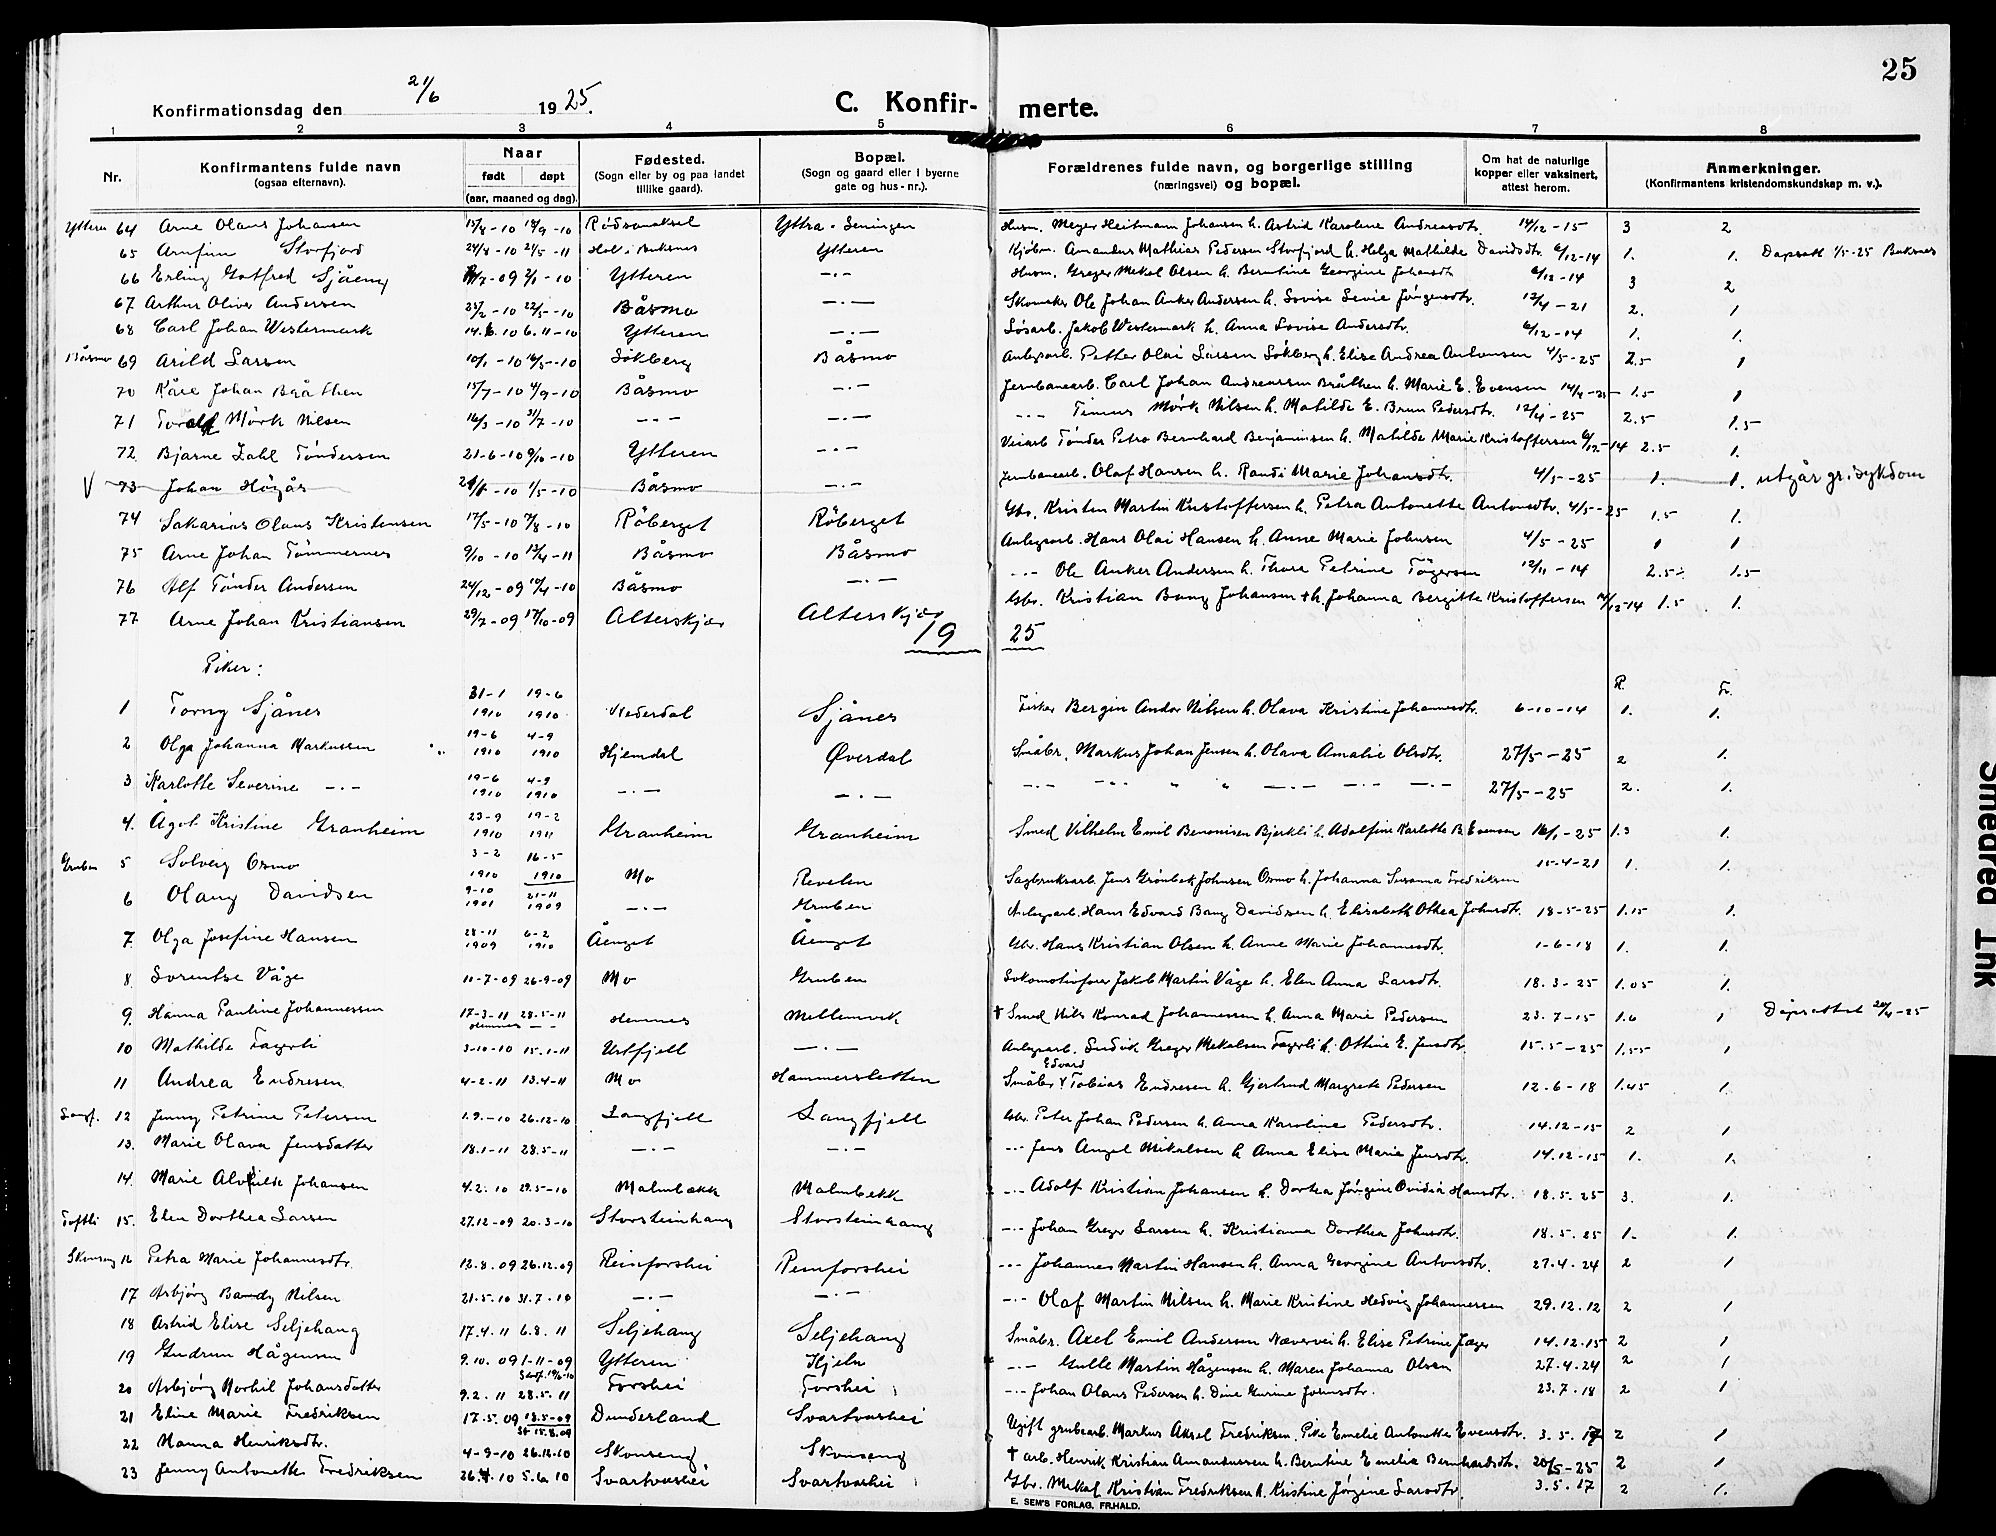 25
Konfirmationsdag den 21/6 1925.
C. Konfir- merte.
1 2 3 4 5 6 7 8
Nr. Konfirmantens fulde navn (ogsaa efternavn). Naar født døpt (aar, maaned og dag). Fødested. (Sogn eller by og paa landet tillike gaard). Bopæl. (Sogn og gaard eller i byerne gate og hus-nr.). Forældrenes fulde navn, og borgerlige stilling (næringsvei) og bopæl. Om hat de naturlige kopper eller vaksinert, attest herom. Anmerkninger. (Konfirmantens kristendomskundskap m. v.).
Ytteren 64 Arne Olaus Johansen 15/8-10 18/9-10 Yttra-Seningen Husm. Meyer Heitmann Johansen h. Astrid Karoline Andreasdtr. 14/12-15 3 2
65 Arnfinn Storfjord 24/8-10 21/5-11 Hol i Buksnes Ytteren Kjøbm. Amandus Mathias Pedersen Storfjord h. Helga Mathilde Davidsdtr. 6/12-14 1. 1. Dåpsatt 1/5-25 Buksnes
66 Erling Gotfred Sjåeng /7-09 2/1-10 Ytteren -·- Husm. Greger Mekal Olsen h. Berntine Georgine Johansdtr 6/12-14 3 2
67 Arthur Oliver Andersen 25/2-10 22/5-10 Båsmo -·- Skomaker Ole Johan Anker Andersen h. Lovise Sevie Jörgensdtr. 12/4-21 2. 1
68 Carl Johan Westermark 14.6.10 6.11-10 Ytteren -·- Løsarb. Jakob Westermark h. Anna Lovise Andersdtr. 6/12-14 1. 1.
Båsmo 69 Arild Larsen 10/1-10 16/5-10 Lökberg Båsmo Anlegsarb. Petter Olai Larsen Lökberg h. Elise Andrea Antonsen 4/5-25 2.5 1
70 Kåre Johan Bråthen 15/7-10 4/9-10 Båsmo -·- Jernbanearb. Carl Johan Andreassen Bråthen h. Marie E. Evensen 14/4-25 1.5 1
71 Toralf Mörk Nilsen 16/3-10 31/7-10 --- -·- -·- Mörk Nilsen h. Matilde E. Brun Pedersdtr. 12/4-25 2.5 1.5
72 Bjarne Zahl Töndersen 21-6-10 9/10-10 Ytteren -·- Veiarb Tönder Petro Bernhard Benjaminsen h. Matilde Marie Kristoffersen 6/12-14 2.5 1.
V 73 Johan Högås 24/1-10 1/5-10 Båsmo -·- Jernbanearb. Olaf Hansen h. Randi Marie Johansdtr. 4/5-25 1. 1. utgår gr. sykdom
74 Sakarias Olaus Kristensen 17/5-10 7/8-10 Röberget Röberget Gbr. Kristen Martin Kristoffersen h. Petra Antonette Antonsdtr. 4/5-25 1.5 1.
75 Arne Johan Tömmernes 9/10-10 13/4-11 Båsmo Båsmo Anlegsarb. Hans Olai Hansen h. Anne Marie Johnsen 4/5-25 1 1
76 Alf Tönder Andersen 24/12-09 10/4-10 Båsmo -·- -·- Ole Anker Andersen h. Thora Petrine Tögersen 12/11-14 2.5 1.5
77 Arne Johan Kristiansen 29/7-09 17/10-09 Alterskjær Alterskjær Gbr. Kristian Bang Johansen + h. Johanna Bergitte Kristoffersen /12-14 1.5 1.
1925
Piker: K. Fr.
1 Torny Sjånes 31-1 1910 19-6 1910 Nederdal Sjånes Fisker Bergin Andor Nilsen h. Olava Kristine Johannesdtr. 6-10-14 1. 1.
2 Olga Johanna Markussen 19-6 1910 4-9 1910 Hjemdal Øverdal Småbr. Markus Johan Jensen h. Olava Amalie Olsdtr. 27/5-25 2 1.
3 Karlotte Severine -·- 19-6 1910 4-9 1910 -·- -·- -·- 27/5-25 2. 1.
4. Ågot Kristine Granheim 23-9 1910 19-2 1911 Granheim Granheim Smed Vilhelm Emil Benonisen Bjerkli h. Adolfine Karlotte B. Evensen 16/1-25 1.3 1.
Gruben 5 Solveig Osmo 3-2 1910 16-5 1910 Mo Revelen Sagbruksarb. Jens Grönbek Johnsen Osmo h. Johanna Susanna Fredriksen 15-4-21 1. 1.
6 Olaug Davidsen 9-10 1901 21-11 1909 -·- Gruben Anlegsarb. Hans Edvard Bang Davidsen h. Elisabeth Othea Johnsdtr. 18-5-25 1.15 1.
7. Olga Josefine Hansen 28-11 1909 6-2 1910 Åenget Åenget Gbr. Hans Kristian Olsen h. Anne Marie Johannesdtr. 1-6-18 1. 1.
8 Lorentse Våge 11-7-09 26-9-09 Mo Gruben Lokomotivfører Jakob Martin Våge h. Elen Anna Larsdtr. 18.3-25 1.05 1.
9. Hanna Pauline Johannessen 17-3-11 28.5-11 Hemnes Hemnes Mellemvik + Smed Nils Konrad Johannessen h. Anna Marie Pedersen 23.7-15 1.6 1 Dåpsattest 20/4-25
10 Mathilde Fagerli 3-10-10 15.1-11 Urtfjell -·- Anlegsarb. Ludvik Greger Mekalsen Fagerli h. Ottine E. Jensdtr. 15.5-25 1.55 1
11 Andrea Endresen 4-2-11 13.4-11 Mo Hammersletten Småbr Edvard Tobias Endresen h. Gjertrud Margrete Pedersen 12.6-18 1.45 1.
Langf. 12 Jenny Petrine Petersen 1.9.-10 26.12-10 Langfjell Langfjell Gbr. Peter Johan Pedersen h. Anna Karoline Pedersdtr. 14.12-15 2 1
13. Marie Olava Jensdatter 18.1-11 28.5-11 -·- -·- -·- Jens Angel Mikalsen h Anna Elise Marie Jensdtr. 14.12-15 1. 1.
14. Marie Alvhilde Johansen 4.2.10 29.5-10 Malmbækk Malmbekk -·- Adolf Kristian Johansen h. Dortea Jörgine Ovidia Hansdtr. 18.5.25 3. 1.
Toftli 15. Elen Dorthea Larsen 27.12-09 20.3-10 Storsteinhaug Storsteinhaug -·- Johan Greger Larsen h. Kristianna Dorthea Johnsdtr. 18.5.25 1. 1.
Skonseng 16 Petra Marie Johannesdtr. 12.8.09 26.12.09 Reinforshei Reinforshei -·- Johannes Martin Hansen h. Anna Georgine Antonsdtr. 27.4.24 2 1
17 Asbjörg Bandy Nilsen 21.5.10 31.7.10 -·- -·- -·- Olaf Martin Nilsen h. Marie Kristine Hedvig Johannessen 29.12.12 2 1
18 Astrid Elise Seljehaug 17.4.11 6.8.11 Seljehaug Seljehaug Småbr. Axel Emil Andersen Nævervei h. Elise Petrine Jæger 14.12.15 2 1
19 Gudrun Hågensen 9.10.09 1-11-09 Ytteren Hjeln -·- Gulle Martin Hågensen h. Maren Johanna Olsen 27.4.24 2 1
20 Asbjörg Borhil Johansdatter 9.2.11 28.5.11 Forshei Forshei -·- Johan Olaus Pedersen h. Dine Gurine Johnsdtr. 23.7.18 2 1
21 Eline Marie Fredriksen 17.5.09 18.5-09 St 15.8.09 Dunderland Svartvashei Ugift grubearb. Markus Aksel Fredriksen. Pike Emelie Antonette Evensdtr. 3.5.17 2 1
22 Hanna Henriksdtr. 4-9-10 26.12.10 Skonseng Skonseng + arb. Henrik Kristian Amandussen h. Berntine Emelie Bernhardsdtr. 20/5-25 2 1
23 Jenny Antonette Fredriksen 26.4.10 5.6.10 Svartvashei Svartvashei Gbr. Mikal Kristian Fredriksen h. Kristine Jörgine Larsdtr. 3.5.17 2 1.
E. SEM'S FORLAG, FR.HALD.
Smeared Ink